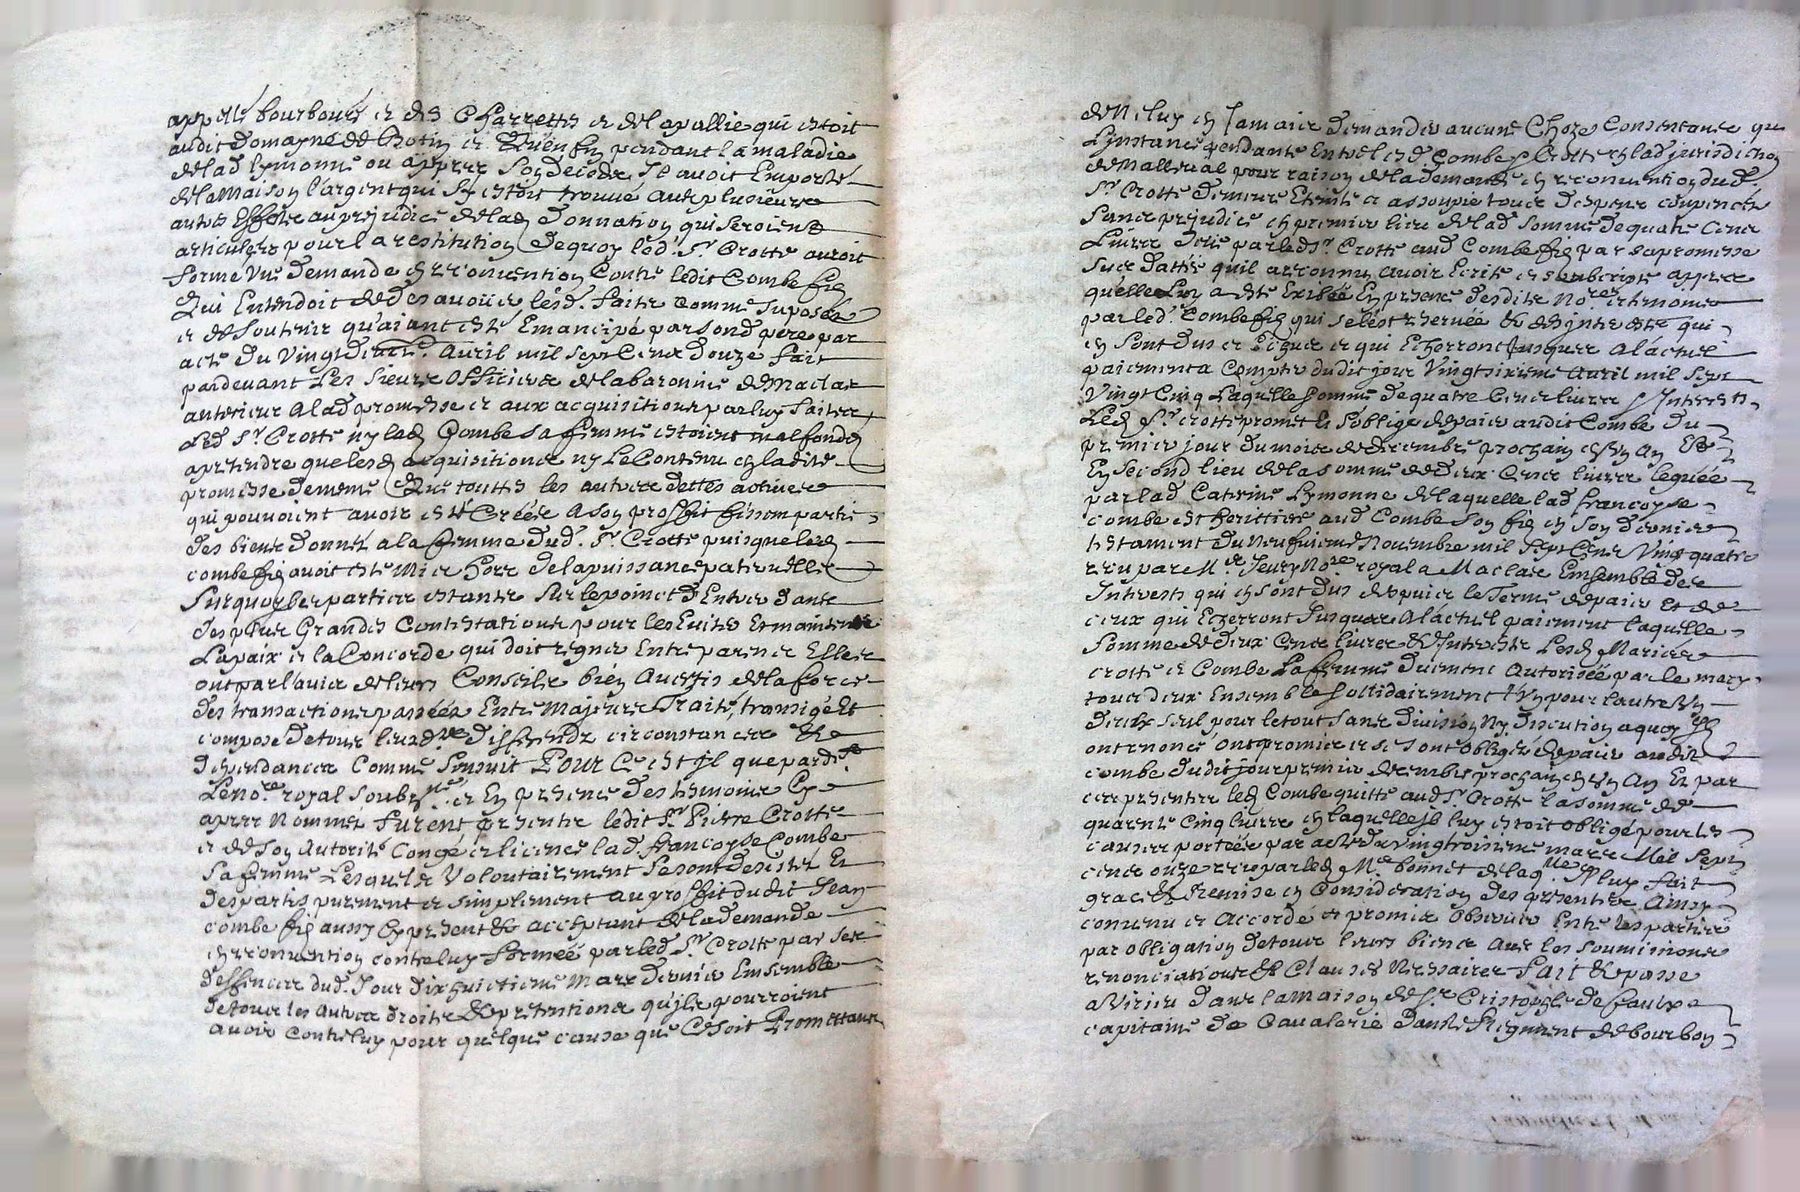 appellé bourboué et des Charrettes et de la pallie qui estoit
audit Domayne de Chotin et qu'enfin pendant la maladie
de lad. Lymonne ou appres son deceds Il avoit Emporté
de la maison l'argent qui s'y estoit trouvé avec plusieurs
autres Effets au prejudice de lad. Donnation qui seroient
articulers pour la restitution Dequoy led. Sr. Crotte auroit
formé Une demande en reconvention Contre ledit Combe fils
Qui Entendoit de desavoüer lesd. faits comme suposés
et de soutenir qu'aiant esté Emancipé par sond. pere par
acte du Vingt Avril mil sept Cens douze fait
pardevant Les sieurs Officiers de la baronnie de Maclas
anterieur A lad. promesse et aux acquisitions par luy faites
Led. Sr. Crotte ny lad. Combe sa femme estoient mal fondés
a pretendre que lesd. acquisitions ny Le Contenu en ladite
promesse de meme Que touttes les autres dettes actives
qui pouvoient avoir esté Creées A son proffit fissent partie
des biens donnés a la femme dud. Sr. Crotte puisque led.
combe fils avoit esté Mis hors de la puissance paternelle
Surquoy les parties estants sur le point d'Entrer dans
des plus Grandes Contestations pour les Eviter Et maintenir
La paix et la Concorde qui doit regner Entre parens Elles
ont par l'avis de leurs Conseils bien Avertis de la force
des transactions passées Entre Majeurs Traité, transigé Et
composé de tous leursd. differendz circonstances Et
dependances Comme s'ensuit POUR Ce est Il que pardt.
Le nore. royal soubzne. et En presence des tesmoins Cy
apres Nommés furent presents ledit Sr. Pierre Crotte
et de son Autorité Congé et licence lad. francoyse Combe
sa femme Lesquels Volontairement se sont desistés Et
despartis purement et simplement au proffit dudit Jean
combe fils aussy Cy present et acceptant de la demande
en reconvention contre luy formée par led. Sr. Crotte par ses
deffences dud. Jour dix huictieme Mars dernier Ensemble
de tous les Autres droits et pretentions qu'ils pourroient
avoir contre luy pour quelque cause que Ce soit Promettans
de N'eluy en Jamais demander aucune Choze Consentants que
L'instance pendante Entre lesd. Combe & Crotte en lad. jurisdiction
de Malleval pour raison de la demande en reconvention dud.
Sr. Crotte demeure Eteinte et assoupie tous despens compencés
sans prejudice en premier lieu de lad. somme de quatre Cens
Livres deüe par led. Sr. Crotte aud. Combe fils par sa promesse
sus dattée qu'il a reconnu avoir Ecrite et soubscripte appres
quelle Luy a esté Exibée En presence desdits Nores. et temoins
par led. Combe fils qui se l'est reservée & des interests qui
en sont dus et qui Echerront Jusques A l'actuel
paiement a Compter dudit jour Vingtsixieme avril mil sept
Vingt Cinq Laquelle somme de quatre Cens livres & Interests
Led. Sr. crotte promet Et s'oblige de paier audit Combe du
premier jour du mois de decembre prochain en un An Et
En second lieu de la somme de deux Cens livres leguée
par lad. Caterine Lymonne de laquelle lad. francoyse
combe est heritiere aud. Combe son fils en son dernier
testament du Neufvieme Novembre mil Sept Cens Vingt quatre
receu par Me. Jeury Nore. royal a Maclas Ensemble des
Interests qui en sont dus depuis le terme de paier et de
ceux qui Echerront Jusques A l'actuel paiement laquelle
somme de deux Cens livres & Interests Lesd. Mariés
crotte et Combe La femme duement Autorisée par le mary
tous deux Ensemble sollidairement l'Un pour l'autre Un
d'eux seul pour le tout sans division Ny discution a quoy ils
ont renoncé ont promis et se sont obligés de paier audit
combe dudit jour premier decembre prochain en un An Et par
ces presentes led. Combe quitte aud. Sr. Crotte la somme de
quarente Cinq livres en laquelle il luy estoit obligé pour les
causes portées par acte du vingtroisieme mars Mil Sept
cens onze receu par led. Me. bonnet de laqlle. Il luy fait
grace & Remise en Consideration des presentes Ainsy
convenu et Accordé et promis Observer Entre les parties
par obligation de tous leurs biens Avec les soumissions
renonciations & Clauses Necessaires Fait & passé
a Virieu dans la maison de Sr. Cristophle de fauls
capitaine de Cavalerie Dans le Regiment de bourbon